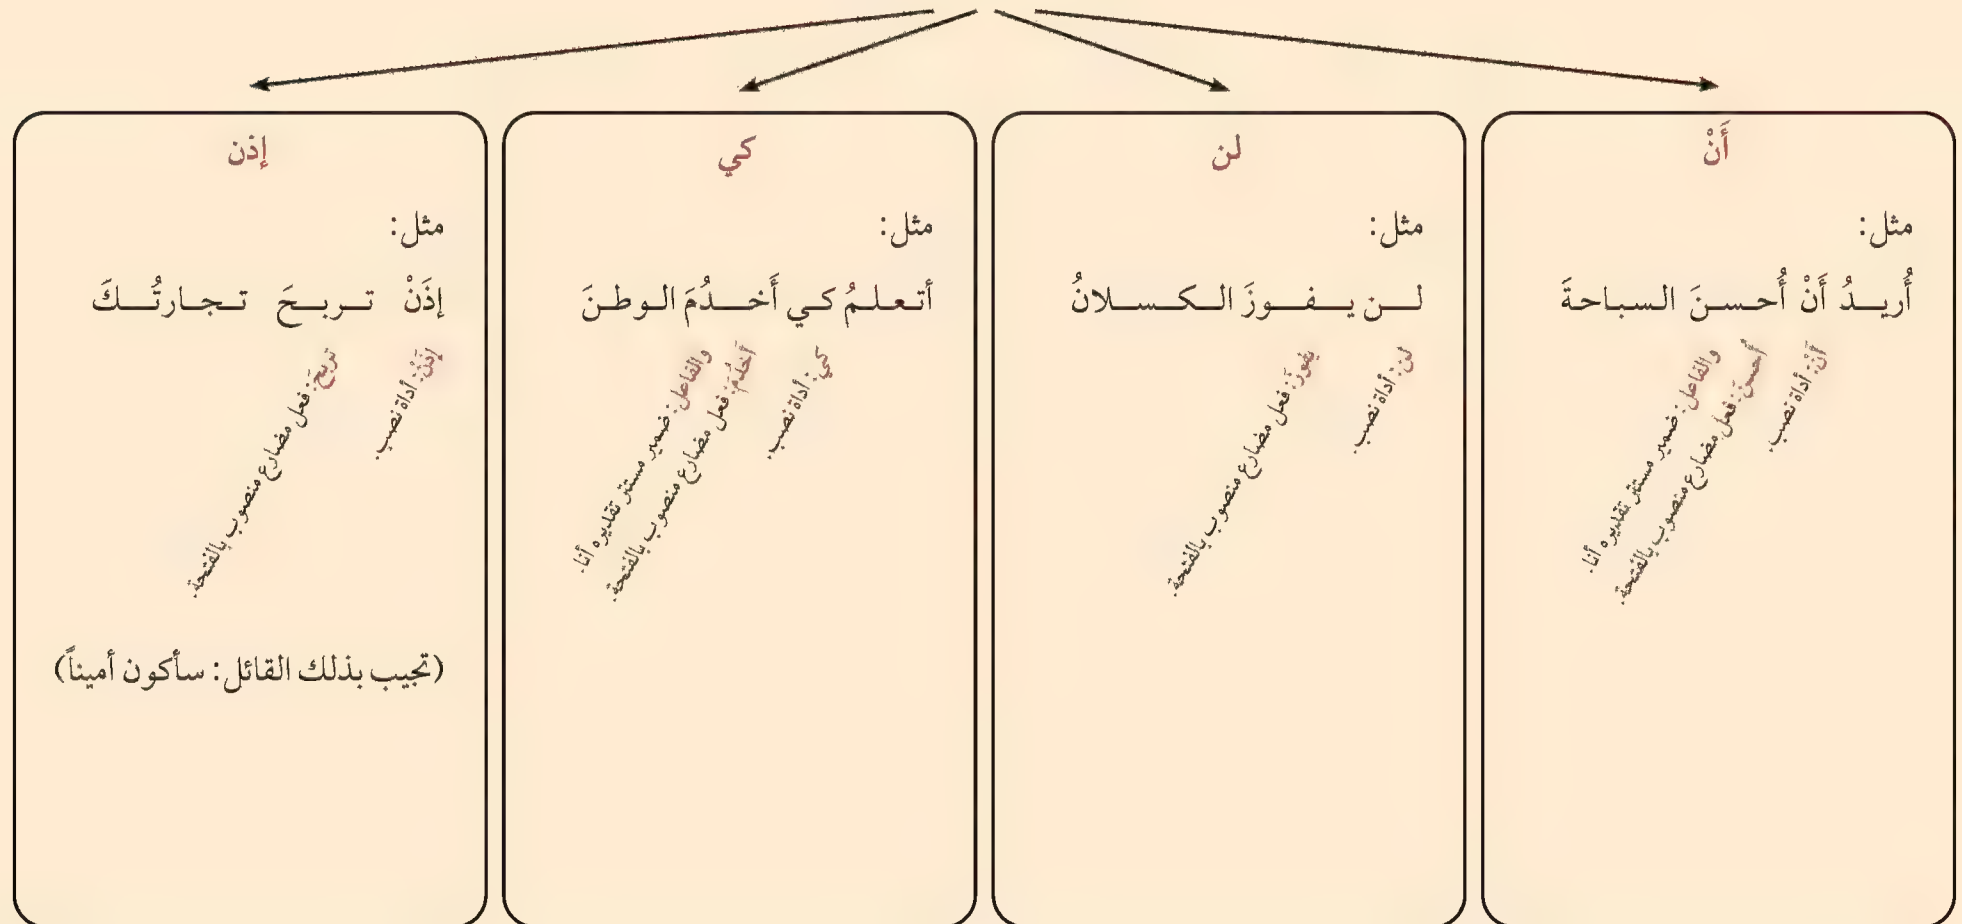 أَنْ
مثل:
أُريدُ أَنْ أُحسنَ السباحةَ
أَنْ: أداة نصب.
أُحسنَ: فعل مضارع منصوب بالفتحة.
والفاعل: ضمير مستتر تقديره أنا.
لن
مثل:
لن يفوزَ الكسلانُ
لن: أداة نصب.
يفوزَ: فعل مضارع منصوب بالفتحة.
كي
مثل:
أتعلمُ كي أَخدُمَ الوطنَ
كي: أداة نصب.
أَخدُمَ: فعل مضارع منصوب بالفتحة.
والفاعل: ضمير مستتر تقديره أنا.
إذن
مثل:
إذَنْ تربحَ تجارتُكَ
إذَنْ: أداة نصب.
تربحَ: فعل مضارع منصوب بالفتحة.
(تجيب بذلك القائل: سأكون أميناً)